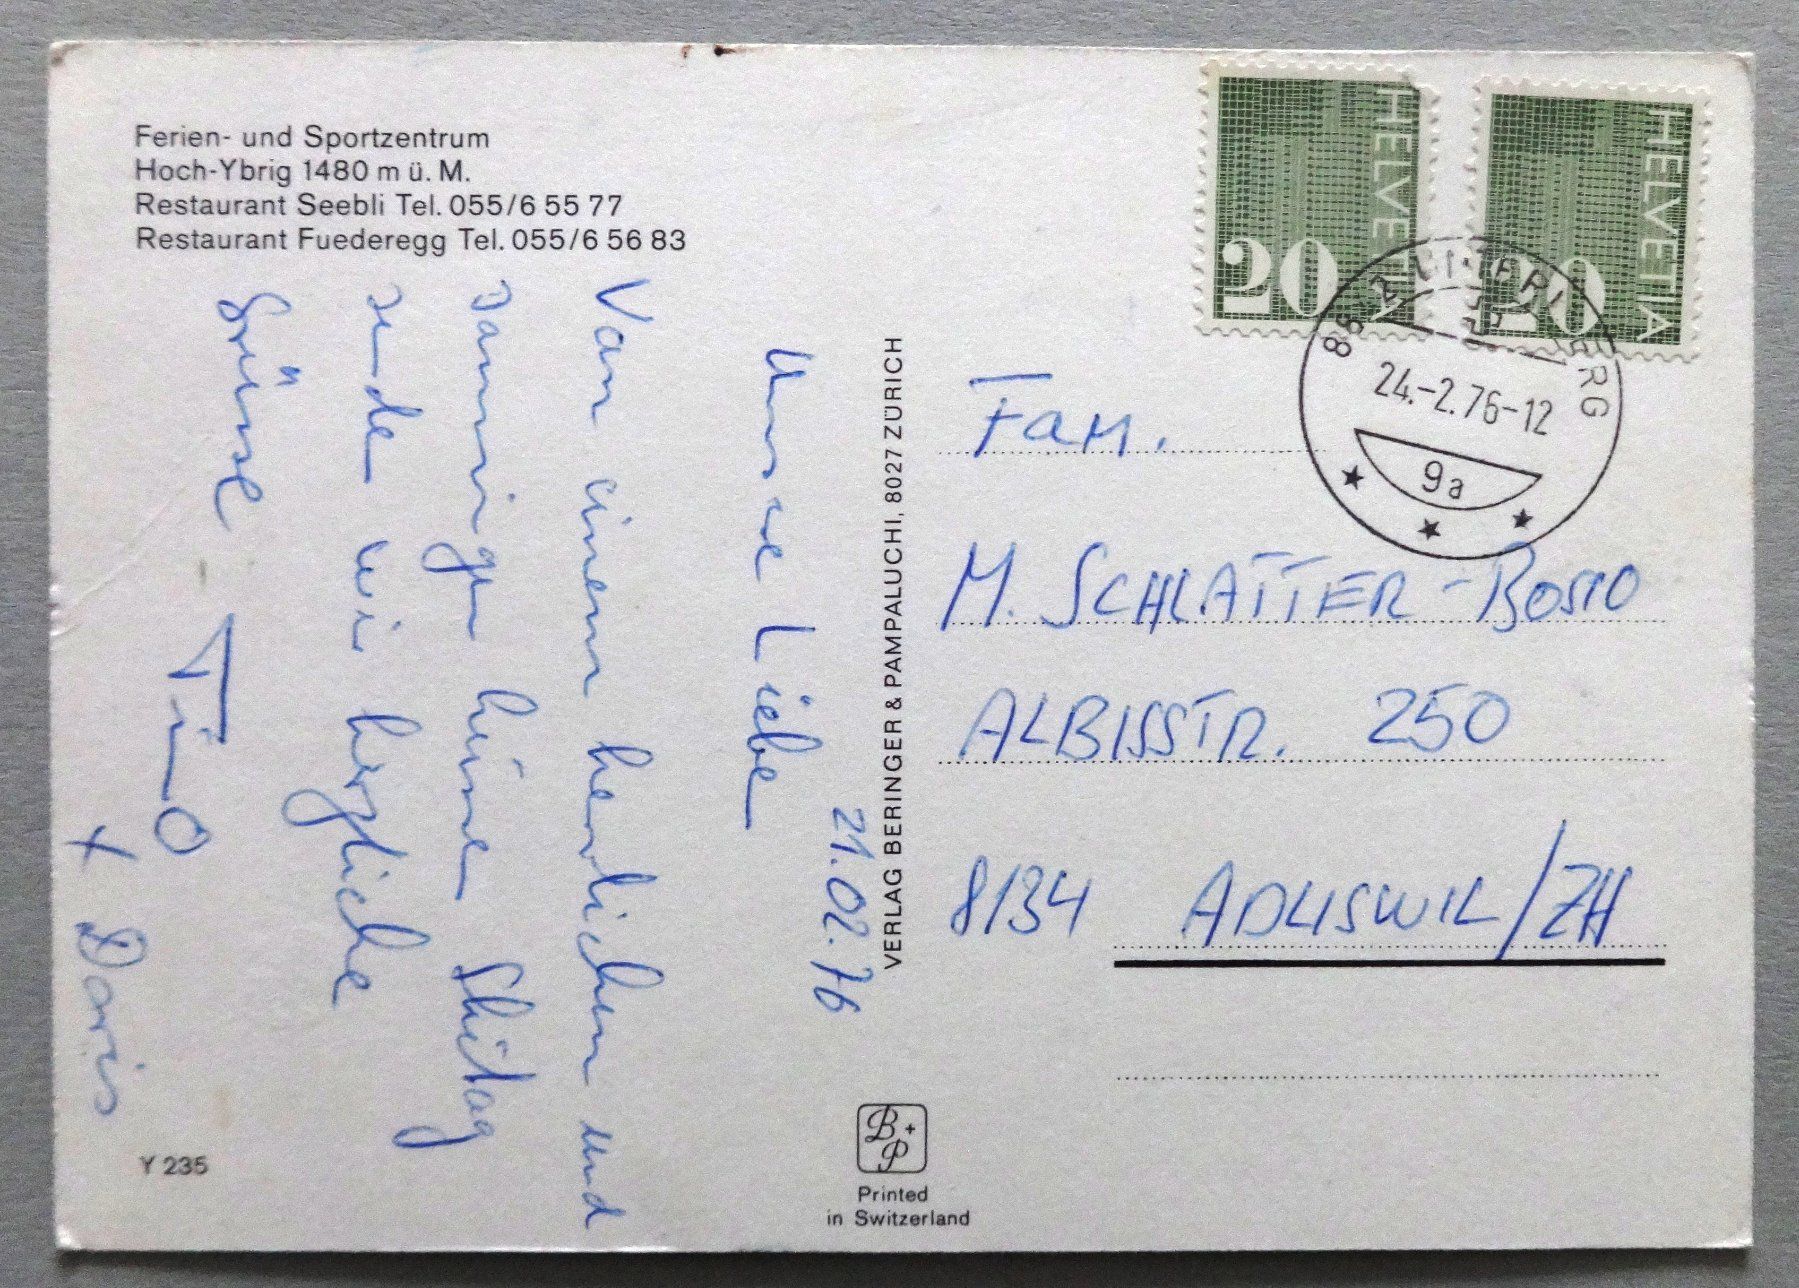 Ferien- und Sportzentrum
Hoch-Ybrig 1480 m ü. M.
Restaurant Seebli Tel. 055/6 55 77
Restaurant Fuederegg Tel. 055/6 56 83
21.02.76
Unsre Liebe
Von einem herrlichen und
sonnigen Skitag
sende wir herzliche
Grüsse
Tino
+ Doris
Y 235
VERLAG BERINGER & PAMPALUCHI, 8027 ZÜRICH
B+P
Printed
in Switzerland
HELVETIA
20
HELVETIA
20
24.-2.76-12
9a
Fam.
M. SCHLATTER-BOSIO
ALBISSTR. 250
8134 ADLISWIL/ZH